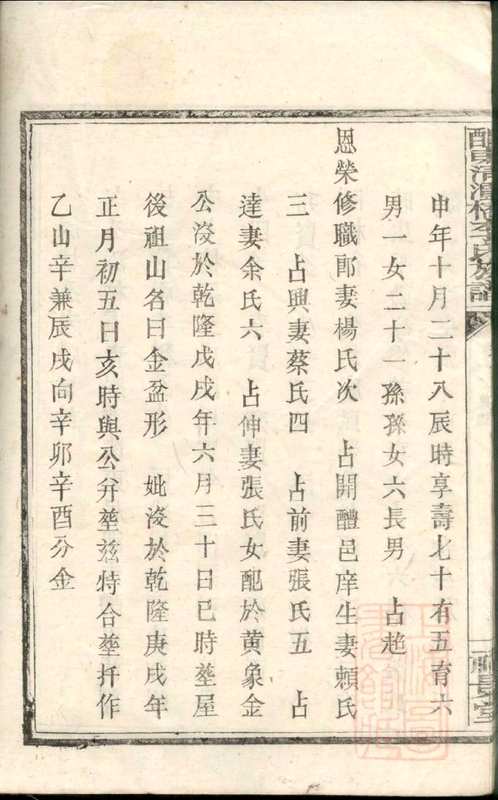 申年十月二十八辰時享壽七十有五育六
男一女二十一孫孫女六長男 占趫
恩榮修職郎妻楊氏次 占開醴邑庠生妻賴氏
三 占興妻蔡氏四 占前妻張氏五 占
達妻余氏六 占伸妻張氏女配於黄象金
公沒於乾隆戊戌年六月三十日巳時塟屋
後祖山名曰金盆形 妣沒於乾隆庚戌年
正月初五日亥時與公弁塟兹特合塟扦作
乙山辛兼辰戌向辛卯辛酉分金